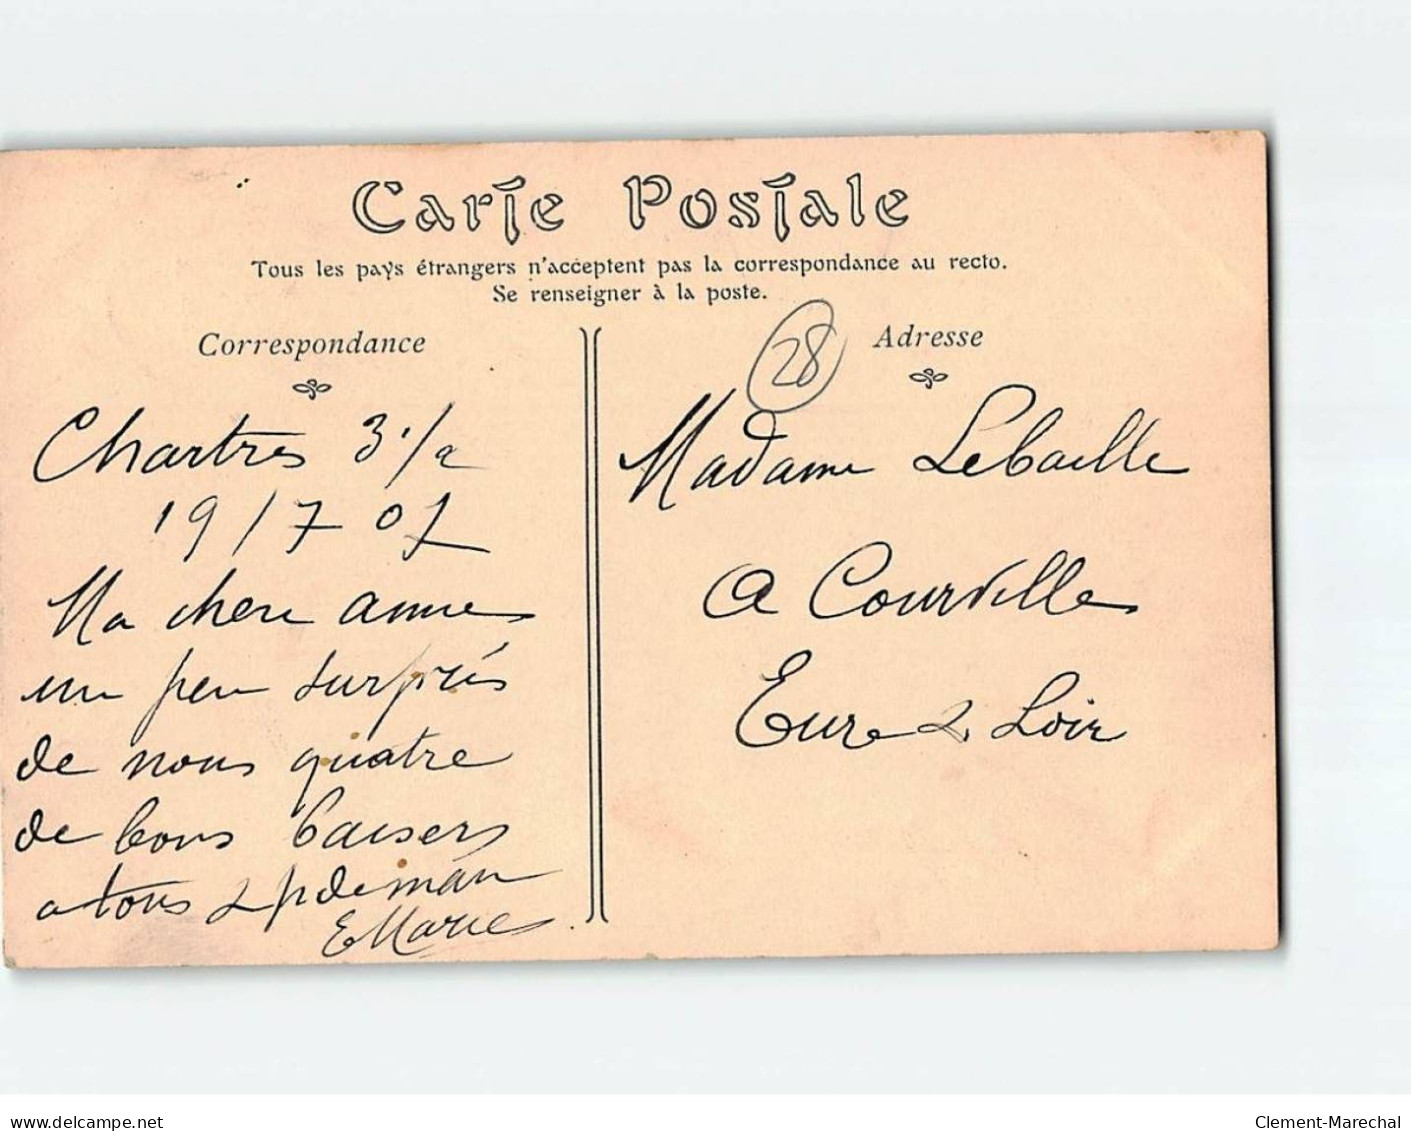 Carte Postale
Tous les pays étrangers n'acceptent pas la correspondance au recto.
Se renseigner à la poste.
Correspondance
Adresse
28
Chartres 3 1/2
19/7 07
Ma chere amie
un peu surpris
de nous quatre
de bons baisers
a tous
E Marie
Madame Lebaille
a Courville
Eure & Loir
www.delcampe.net
Clement-Marechal